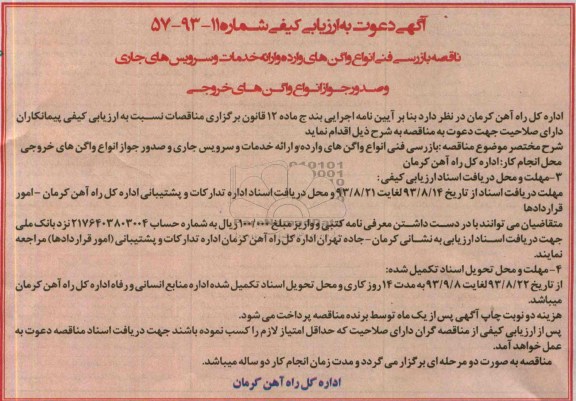 آگهی دعوت به ارزیابی کیفی شماره ۱۱-۹۳-۵۷
ناقصه بازرسی فنی انواع واگن های وارده وارائه خدمات وسرویس های جاری
وصدور جواز انواع واگن های خروجی
اداره کل راه آهن کرمان در نظر دارد بنا بر آیین نامه اجرایی بند ج ماده ۱۲ قانون برگزاری مناقصات نسبت به ارزیابی کیفی پیمانکاران
دارای صلاحیت جهت دعوت به مناقصه به شرح ذیل اقدام نماید
شرح مختصر موضوع مناقصه :بازرسی فنی انواع واگن های وارده و ارائه خدمات و سرویس جاری و صدور جواز انواع واگن های خروجی
محل انجام کار: اداره کل راه آهن کرمان
۳-مهلت و محل دریافت اسناد ارزیابی کیفی:
مهلت دریافت اسناد از تاریخ ۹۳/۸/۱۴ لغایت ۹۳/۸/۲۱ و محل دریافت اسناد اداره تدارکات و پشتیبانی اداره کل راه آهن کرمان -امور
قراردادها
متقاضیان می توانند با در دست داشتن معرفی نامه کتبی و واریز مبلغ ۱۰۰/۰۰۰ ریال به شماره حساب ۲۱۷۶۴۰۳۸۰۳۰۰۴ نزد بانک ملی
جهت دریافت اسناد ارزیابی به نشانی کرمان -جاده تهران اداره کل راه آهن کرمان اداره تدارکات و پشتیبانی (امور قراردادها) مراجعه
نمایند.
۴-مهلت و محل تحویل اسناد تکمیل شده:
از تاریخ ۹۳/۸/۲۲ لغایت ۹۳/۹/۸ به مدت ۱۴ روز کاری و محل تحویل اسناد تکمیل شده اداره منابع انسانی و رفاه اداره کل راه آهن کرمان
میباشد.
هزینه دو نوبت چاپ آگهی پس از یک ماه توسط برنده مناقصه پرداخت می شود.
پس از ارزیابی کیفی از مناقصه گران دارای صلاحیت که حداقل امتیاز لازم را کسب نموده باشند جهت دریافت اسناد مناقصه دعوت به
عمل خواهد آمد.
مناقصه به صورت دو مرحله ای برگزار می گردد و مدت زمان انجام کار دو ساله میباشد.
اداره کل راه آهن کرمان